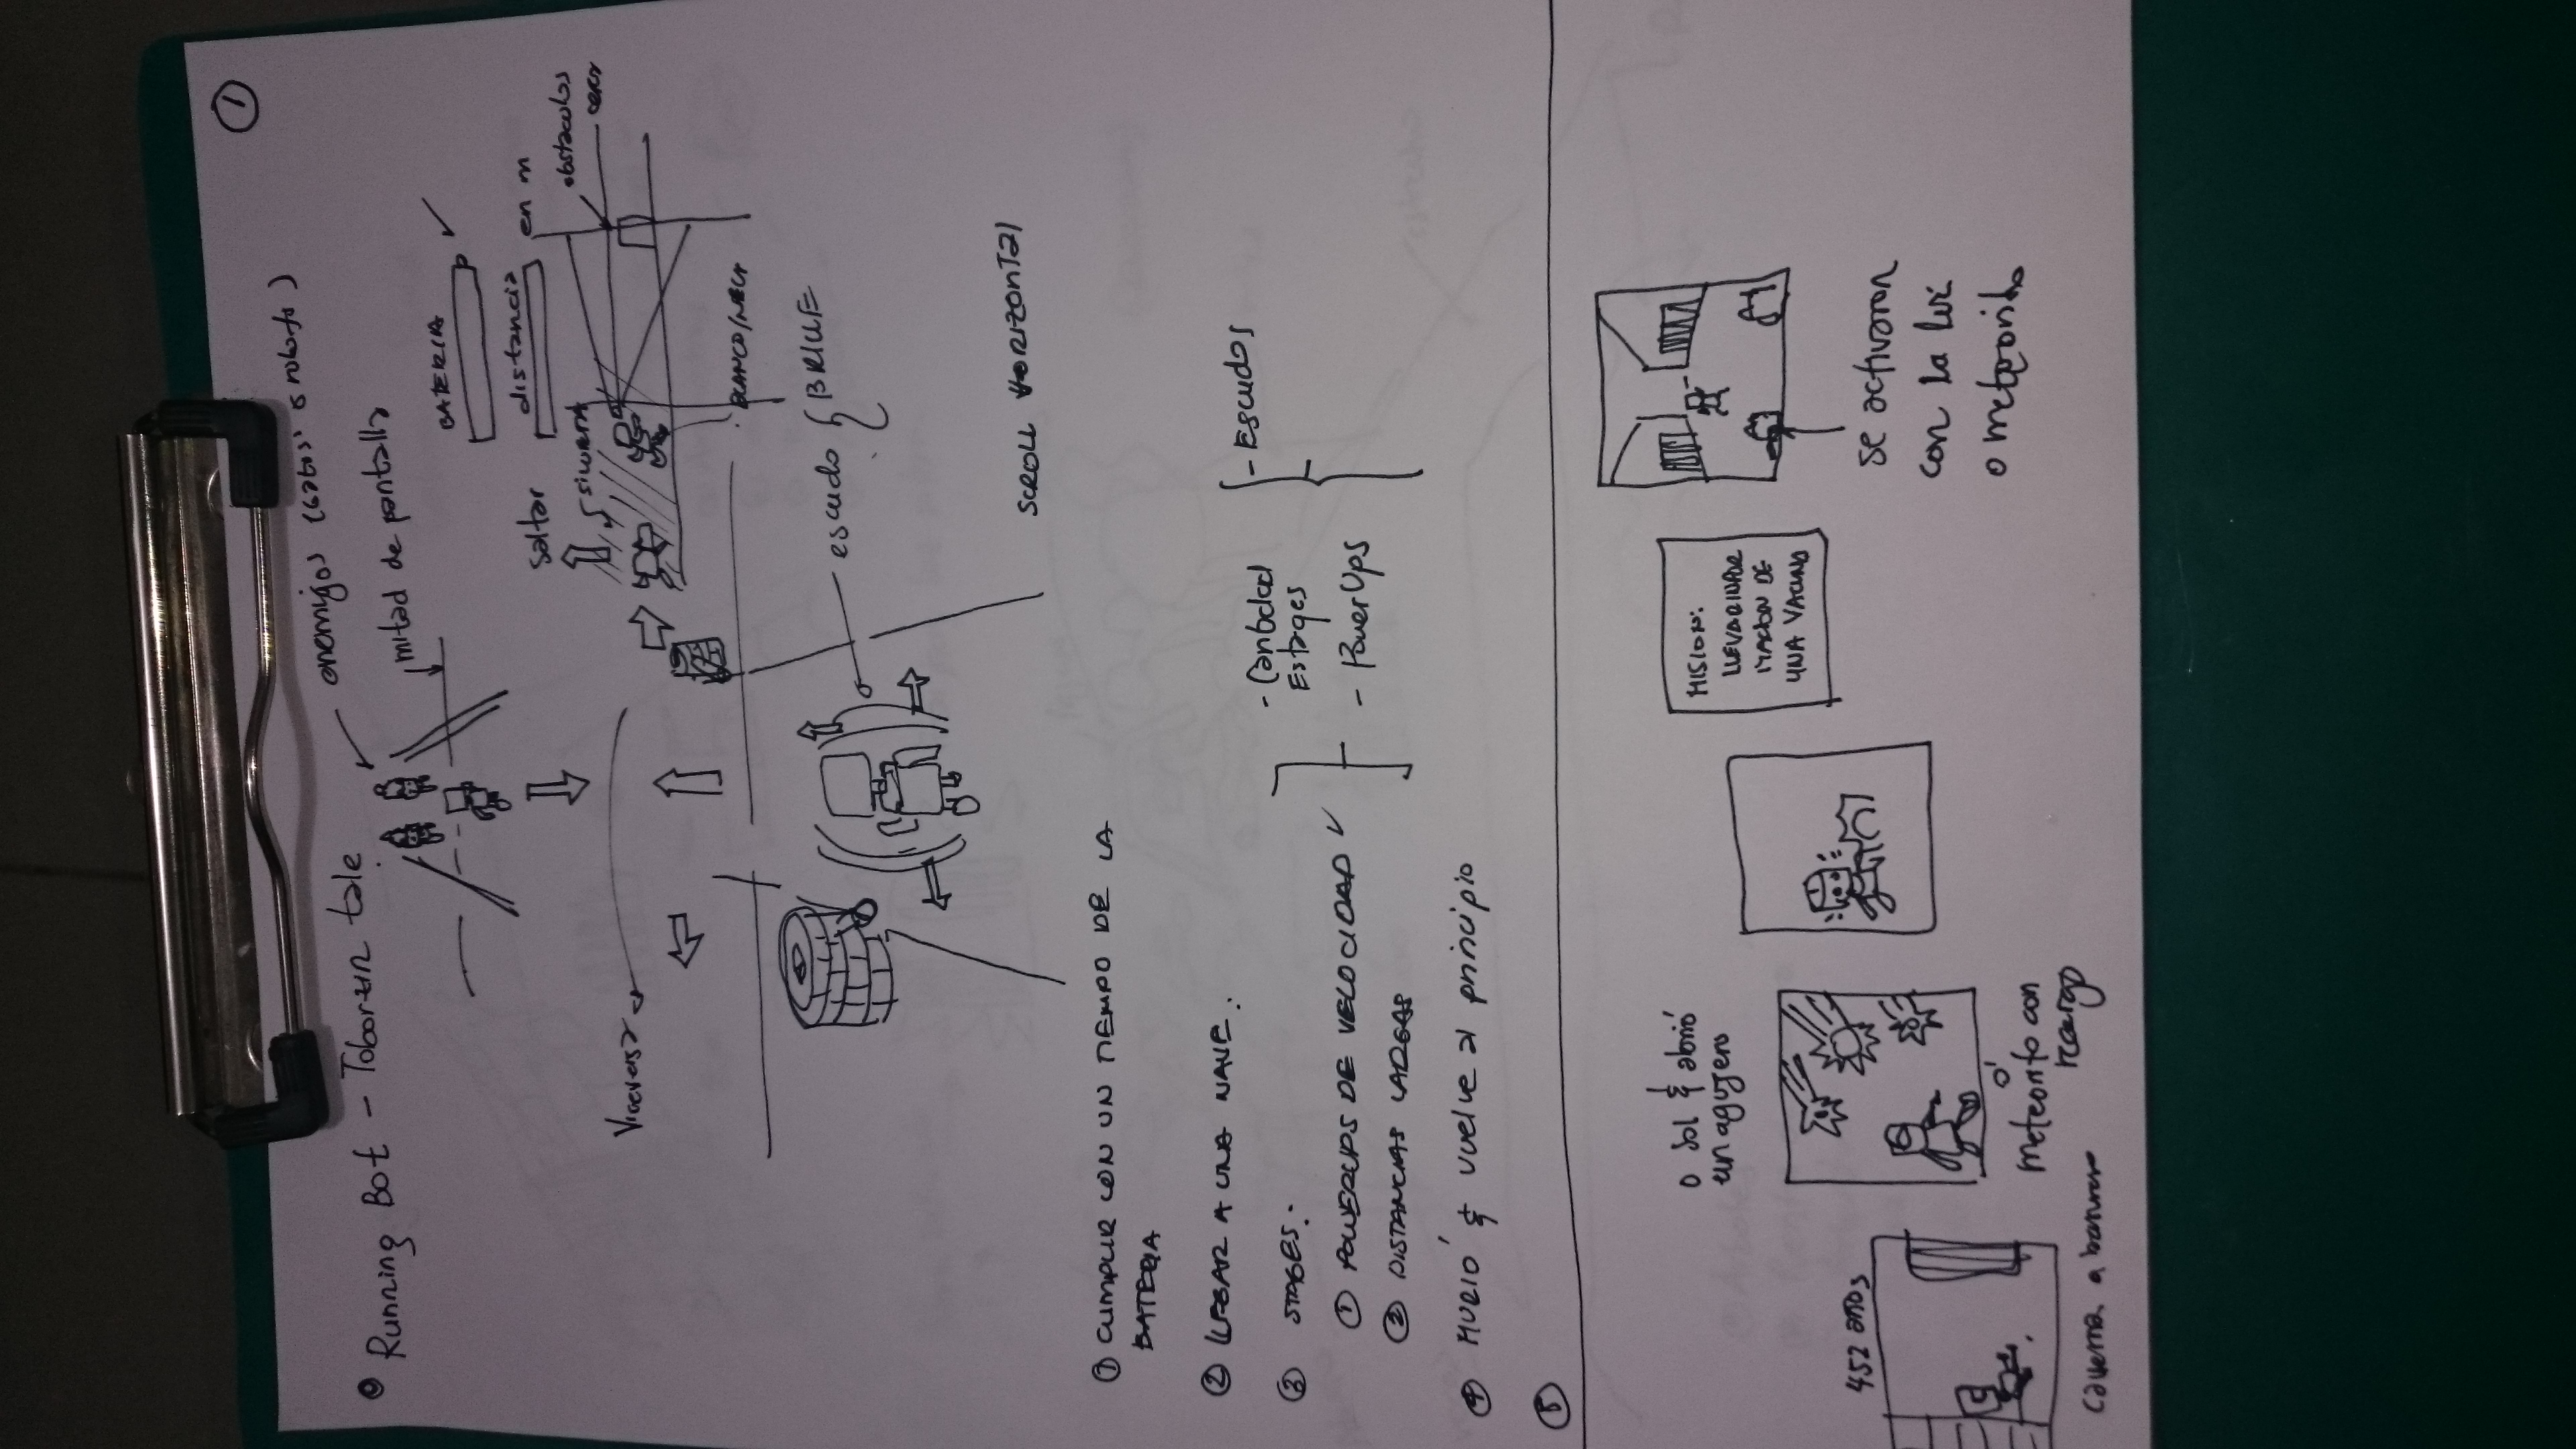 1
Running Bot - Tobor un tale
enemigos (gatos o robots)
mitad de pantalla
BATERIA
distancia
en m
saltar
silueta
obstaculos
cerca
Viceversa
escudo { BRILLE
SCROLL HORIZONTAL
① CUMPLIR CON UN TIEMPO DE LA
BATERIA
② LLEGAR A UNA NAVE.
③ STAGES:
① POWERUPS DE VELOCIDAD ✓
② DISTANCIAS LARGAS
- Cantidad
Estages
- PowerUps
- Escudos
④ MURIÓ & vuelve al principio
⑤
o sol & abrió
un agujero
452 años
caverna
ó
meteorito con
recargo
MISION:
LLEVAR INFOR
MACION DE
UNA VACUNA
se activaron
con la luz
o meteorito